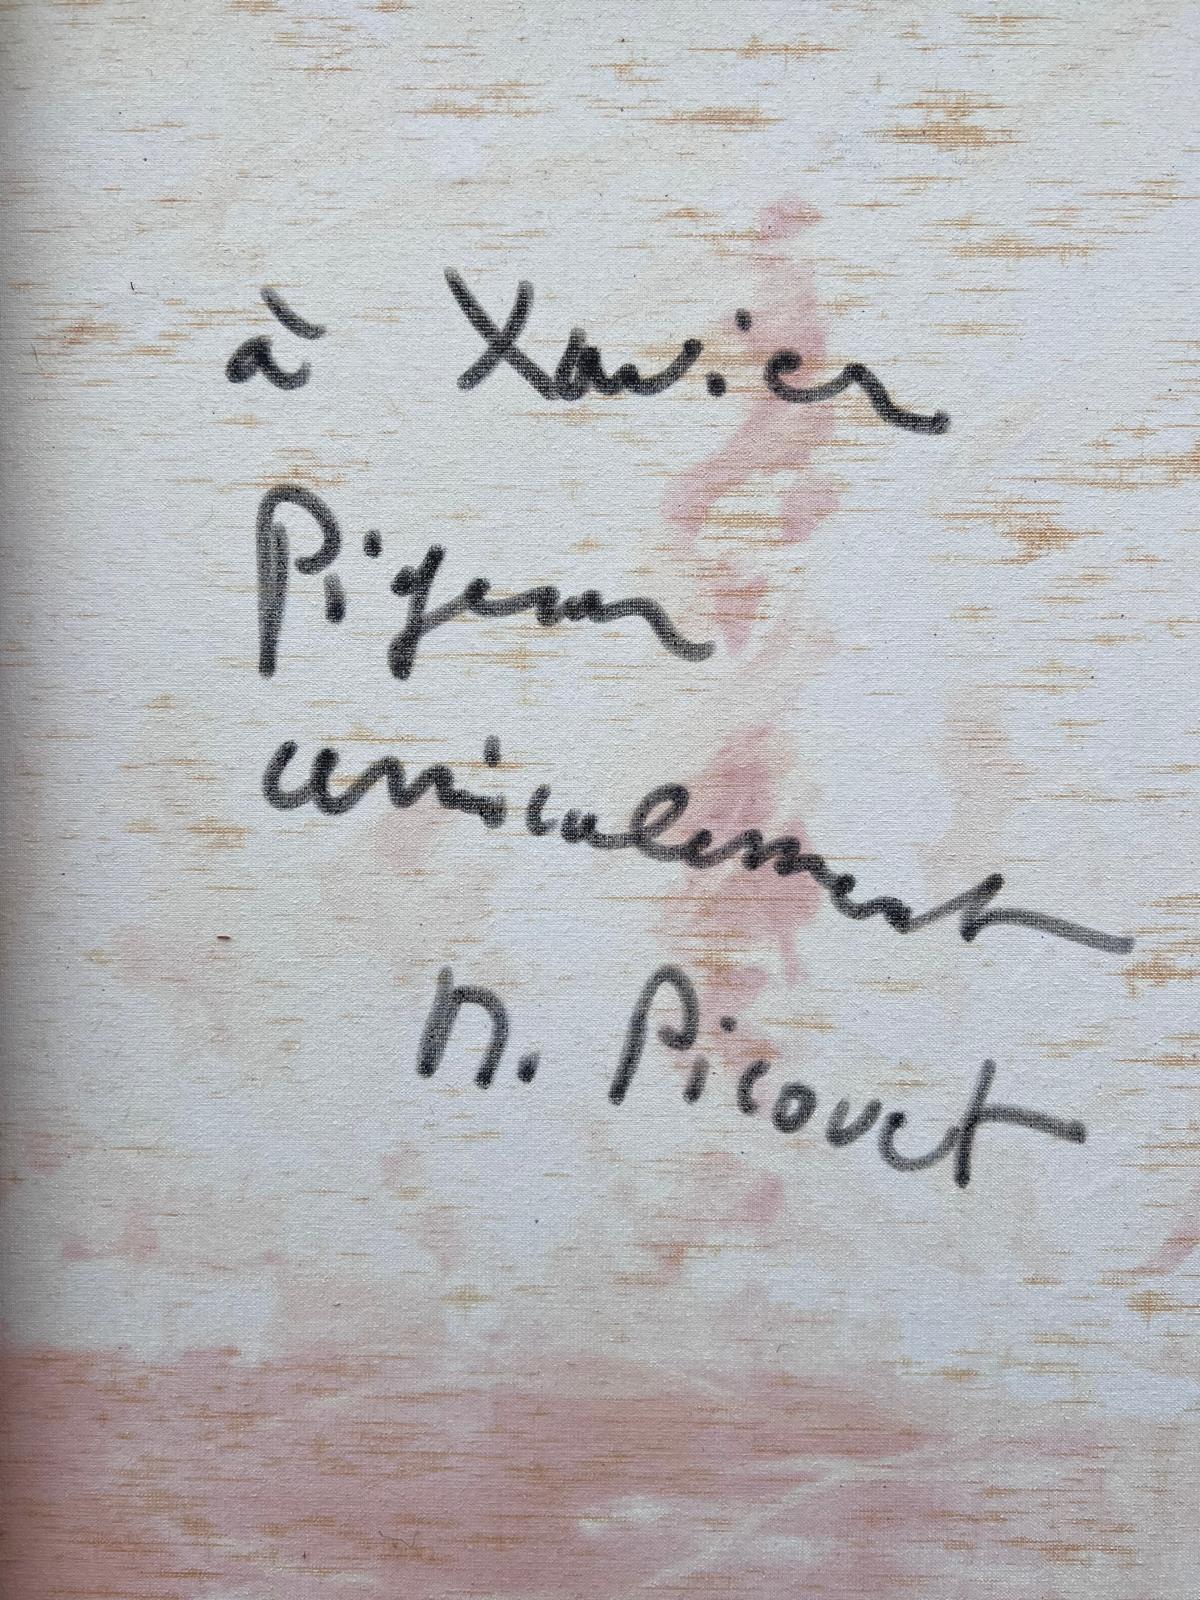 à Xavier
Pigeon
amicalement
N. Picouet